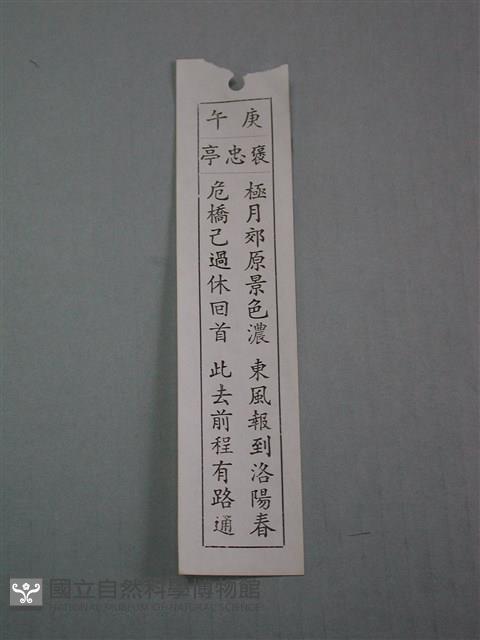 庚午
褒忠亭
極月郊原景色濃　東風報到洛陽春
危橋己過休回首　此去前程有路通
國立自然科學博物館
NATIONAL MUSEUM OF NATURAL SCIENCE